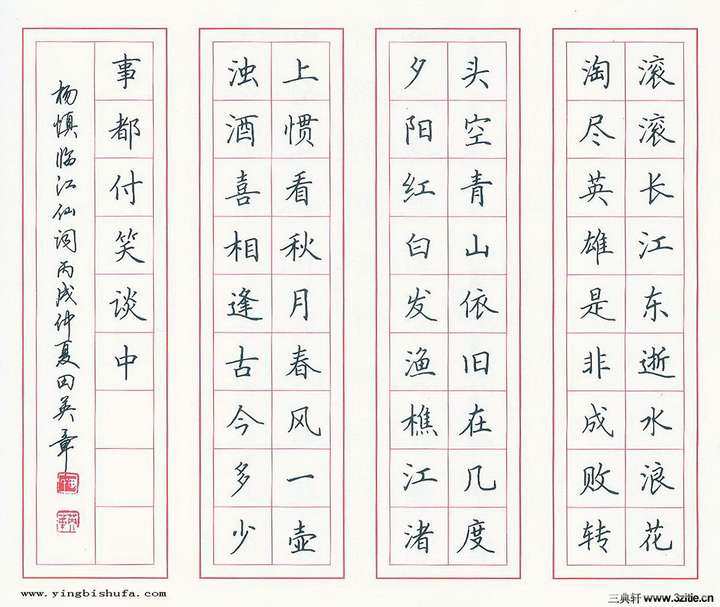 滚滚长江东逝水浪花
淘尽英雄是非成败转
头空青山依旧在几度
夕阳红白发渔樵江渚
上惯看秋月春风一壶
浊酒喜相逢古今多少
事都付笑谈中
杨慎临江仙词丙戌仲夏田英章
www.yingbishufa.com
三典轩 www.3zitie.cn